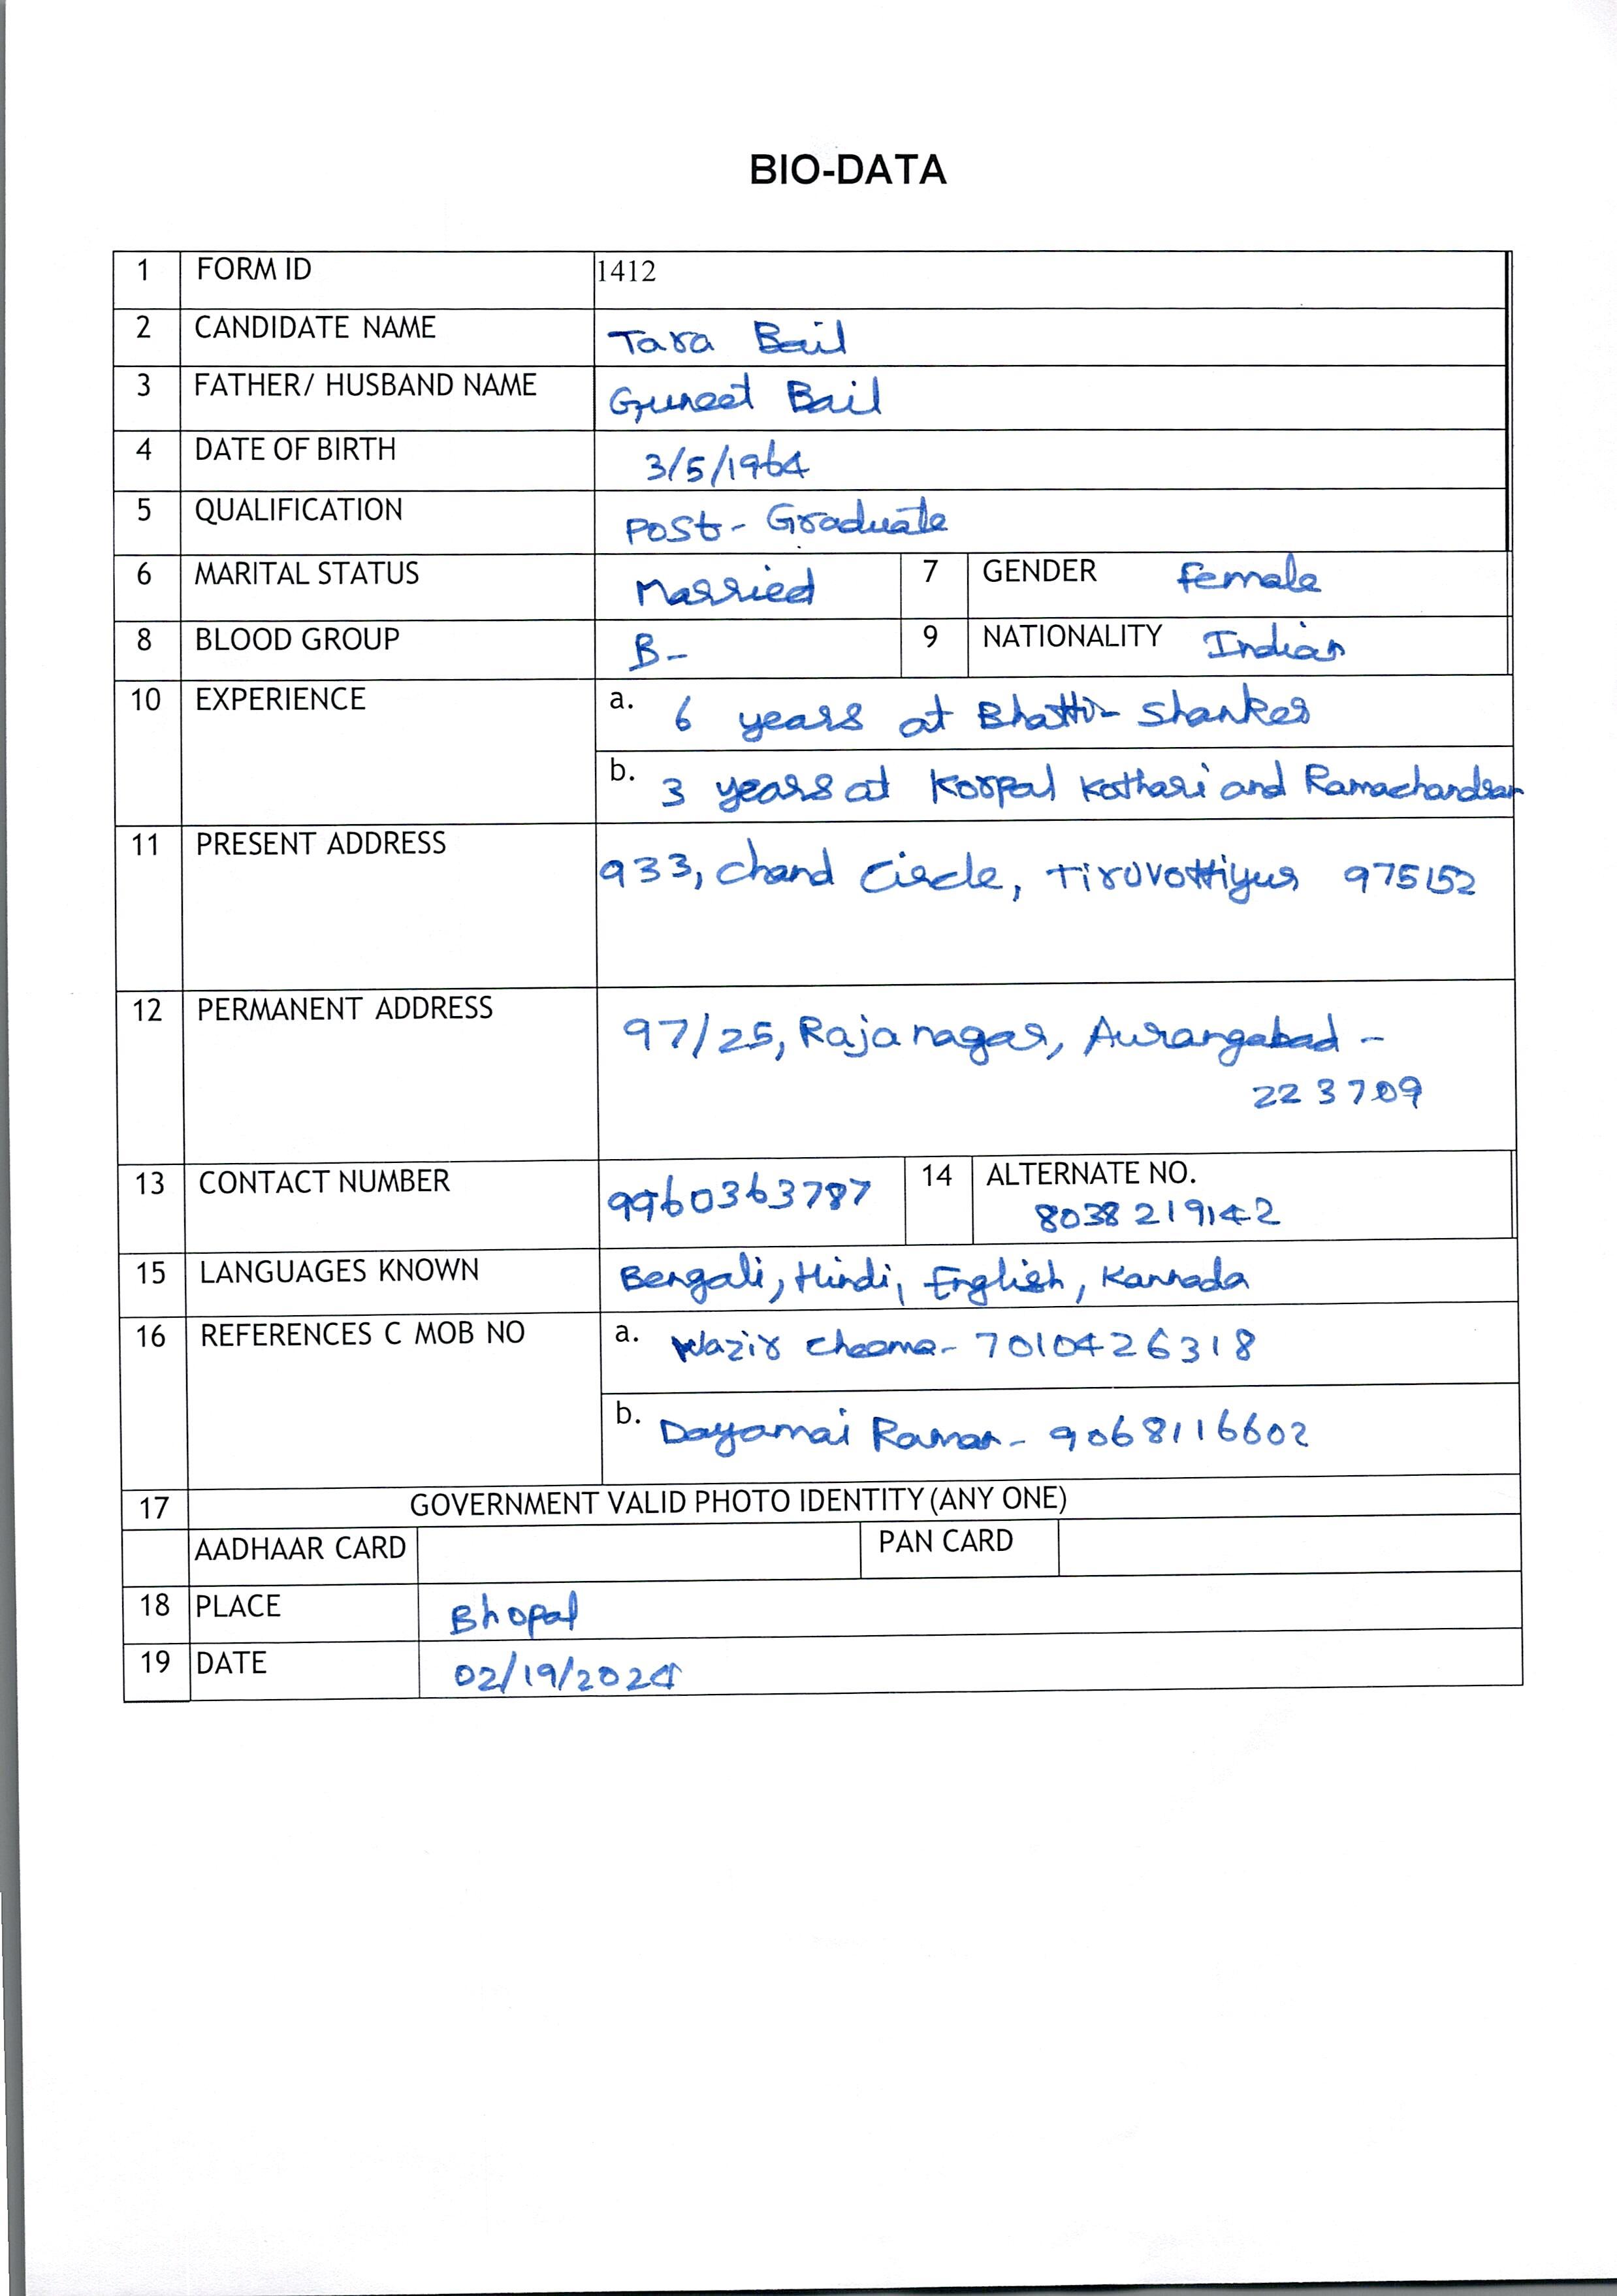 BIO-DATA
1 FORM ID 1412
2 CANDIDATE NAME Tara Bail
3 FATHER/ HUSBAND NAME Guneet Bail
4 DATE OF BIRTH 3/5/1964
5 QUALIFICATION Post-Graduate
6 MARITAL STATUS Married 7 GENDER Female
8 BLOOD GROUP B- 9 NATIONALITY Indian
10 EXPERIENCE a. 6 years at Bhatti-Shanker
b. 3 years at Korpal Kothari and Ramachandran
11 PRESENT ADDRESS 933, Chand Circle, Tiruvottiyur 975152
12 PERMANENT ADDRESS 97/25, Raja nagar, Aurangabad -
223709
13 CONTACT NUMBER 9960363787 14 ALTERNATE NO.
8038219142
15 LANGUAGES KNOWN Bengali, Hindi, English, Kannada
16 REFERENCES C MOB NO a. Wazir Cheema - 7010426318
b. Dayamai Raman - 9068116602
17 GOVERNMENT VALID PHOTO IDENTITY (ANY ONE)
AADHAAR CARD PAN CARD
18 PLACE Bhopal
19 DATE 02/19/2024